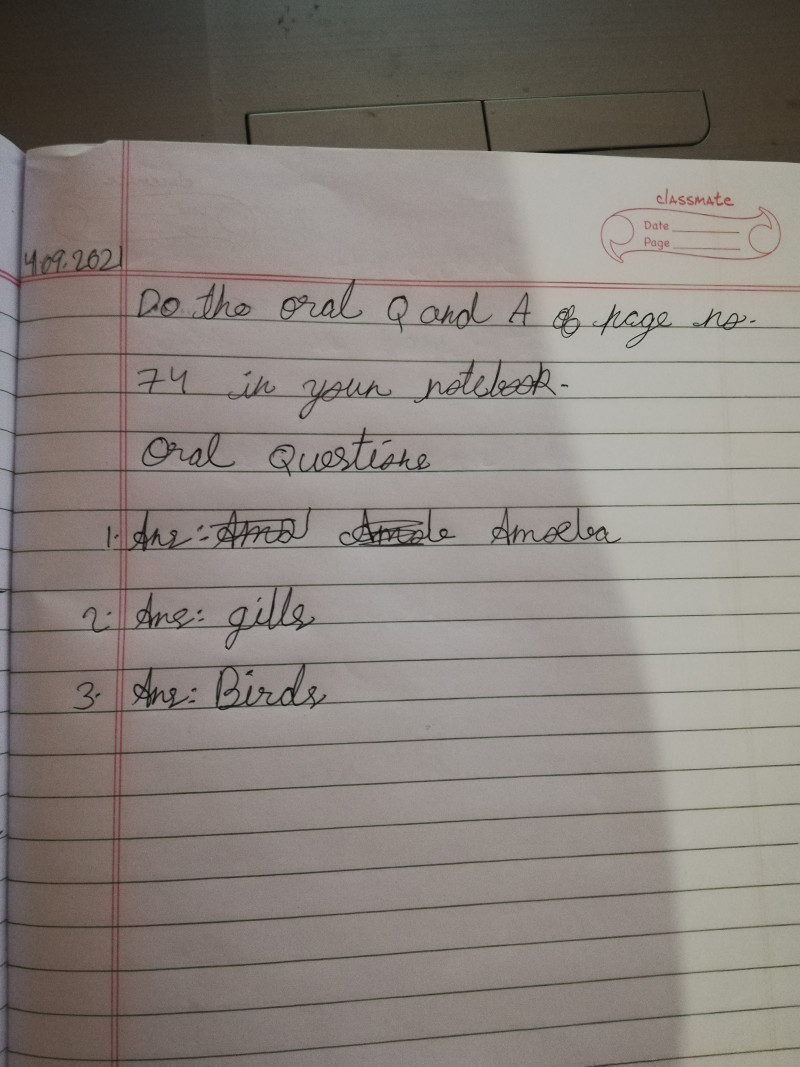 classmate
Date
Page
4.09.2021
Do the oral Q and A of page no.
74 in your notebook.
Oral Questions
1. Ans: Amoeba
2. Ans: gills
3. Ans: Birds